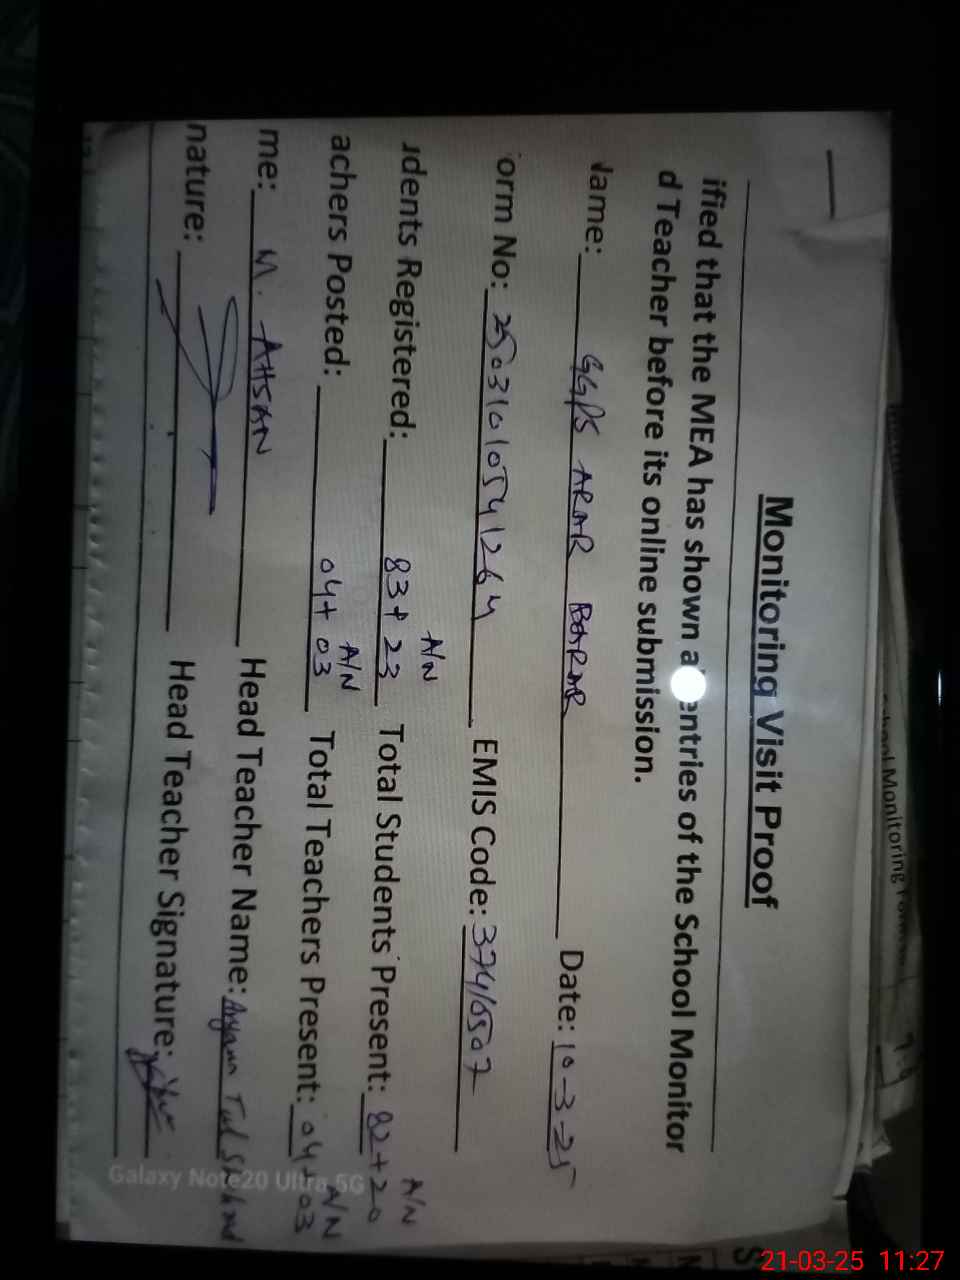 School Monitoring
Monitoring Visit Proof
ified that the MEA has shown a entries of the School Monitor
d Teacher before its online submission.
Name: GGPS ARAR BARAR Date: 10-3-25
orm No: 25031010541264 EMIS Code: 37410507
A/N A/N
udents Registered: 83+23 Total Students Present: 82+20
A/N A/N
achers Posted: 04+03 Total Teachers Present: 04+03
me: M. AHSAN Head Teacher Name:
nature: Head Teacher Signature:
Galaxy Note20 Ultra 5G
21-03-25 11:27